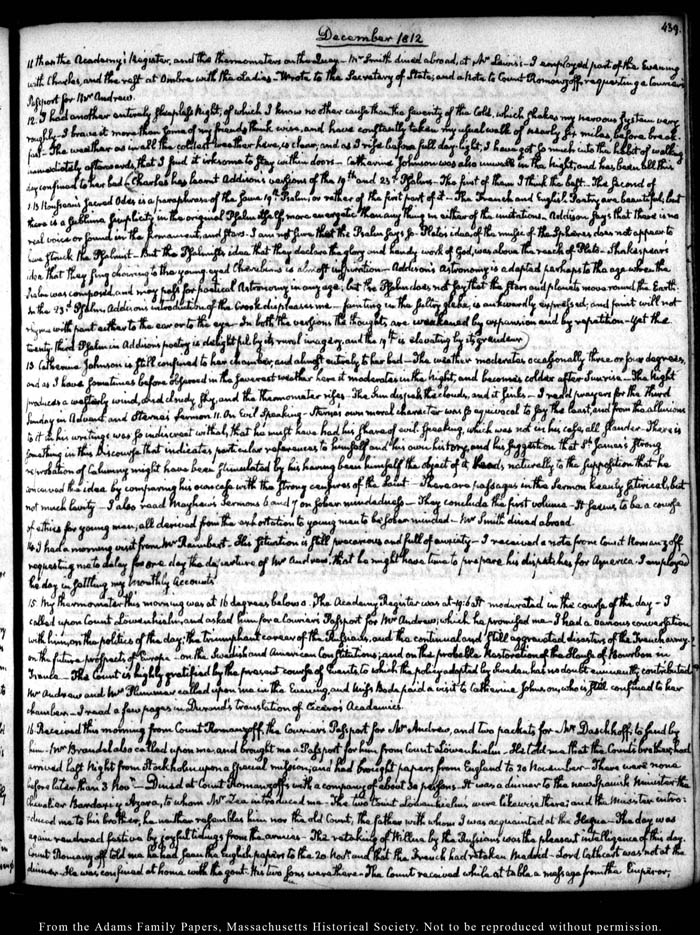 439.
December 1812
11 than the Academy's Register, and the thermometers on the Quay. Mr Smith dined abroad, at Mr Lewis's. I employed part of the Evening
with Charles, and the rest at Ombre with the Ladies. Wrote to the Secretary of State, and a Note to Count Romanzoff, requesting a Courier's
Passport for Mr Andrew.
12. I had another entirely sleepless Night, of which I know no other cause than the severity of the Cold, which shakes my nervous System very
roughly. I brave it more than some of my friends think wise, and have constantly taken my usual walk of nearly six miles, before break-
fast. The weather as in all the coldest weather here, is clear, and as I rise before full day light, I have got so much into the habit of walking
immediately afterwards, that I find it irksome to stay within doors. Catherine Johnson was also unwell in the Night, and has been all this
day confined to her bed. Charles has learnt Addison's versions of the 19th and 23d Psalms. The first of them I think the best. The Second of
J. B. Rousseau's Sacred Odes is a paraphrase of the same 19th Psalm, or rather of the first part of it. The French and English Poetry are beautiful, but
there is a sublime simplicity in the original Psalm itself, more energetic than any thing in either of the imitations. Addison says that there is no
real voice or sound in the firmament and stars. I am not sure that the Psalm says so. Plato's idea of the music of the Spheres does not appear to
have struck the Psalmist. But the Psalmist's idea that they declare the glory and handy work of God, was above the reach of Plato. Shakespear's
idea that they sing choiring to the young eyed Cherubims is also of inspiration. Addison's Astronomy is adapted perhaps to the age when the
Psalm was composed, and may pass for poetical Astronomy in any age; but the Psalm does not say that the Stars and planets move round the Earth.
In the 23d Psalm Addison's introduction of the Crook displeases me. fainting in the sultry glebe, is awkwardly expressed; and faint will not
rhyme with pant either to the ear or to the eye. In both the versions the thoughts are weakened by expansion and by repetition. Yet the
twenty third Psalm in Addison's poetry is delightful by its rural imagery, and the 19th is elevating by its grandeur.
13. Catherine Johnson is still confined to her chamber, and almost entirely to her bed. The weather moderates occasionally three or four degrees,
and as I have sometimes before observed in the severest weather here it moderates in the Night, and becomes colder after Sunrise. The Night
produces a westerly wind, and cloudy sky, and the thermometer rises. The Sun dispels the clouds, and it sinks. I read prayers for the third
Sunday in Advent and Sterne's Sermon 11. On Evil Speaking. Sterne's own moral character was so equivocal to say the least, and from the allusions
to it in his writings was so indiscreet withal, that he must have had his share of evil speaking, which was not in his case, all slander. There is
something in this discourse that indicates particular references to himself and his own history, and his suggestion that St James's strong
reprobation of Calumny might have been stimulated by his having been himself the object of it leads naturally, to the supposition that he
conceived the idea by comparing his own case with the strong censures of the Saint. There are passages in the Sermon keenly satirical, but
not much levity. I also read Mayhew's Sermons 6 and 7 on sober mindedness. They conclude the first volume. It seems to be a course
of ethics for young men, all derived from the exhortation to young men to be sober minded. Mr Smith dined abroad.
14. I had a morning visit from Mr Raimbert. His situation is still precarious and full of anxiety. I received a note from Count Romanzoff,
requesting me to delay for one day the departure of Mr Andrew, that he might have time to prepare his dispatches for America. I employed
the day in settling my Monthly Accounts.
15. My thermometer this morning was at 16 degrees below 0. The Academy Register was at 19:6. It moderated in the course of the day. I
called upon Count Lowenhielm, and asked him for a Courier's Passport for Mr Andrew; which he promised me. I had a various conversation
with him, on the politics of the day; the triumphant career of the Russians, and the continual and still aggravated disasters of the French army.
on the future prospects of Europe. on the Swedish and American Constitutions; and on the probable Restoration of the House of Bourbon in
France. The Count is highly gratified by the present course of events, to which the policy adopted by Sweden has no doubt eminently contributed.
Mr Andrew and Mr Plummer called upon me in the Evening, and Miss Bode paid a visit to Catherine Johnson, who is still confined to her
chamber. I read a few pages in Durand's translation of Cicero's Academics.
16. Received this morning from Count Romanzoff, the Courier's Passport for Mr Andrew, and two packets for Mr Daschkoff, to send by
him. Mr Brandel also called upon me, and brought me a Passport for him from Count Lowenhielm. He told me that the Count's brother, had
arrived last Night from Stockholm upon a special mission, and had brought papers from England to 20 November. There were none
before later than 3 Nov. Dined at Count Romanzoff's with a company of about 30 persons. It was a dinner to the new Spanish Minister the
Chevalier Bardaxi y Azara, to whom Mr Zea introduced me. The two Counts Lowenhielm were likewise there; and the Minister intro-
duced me to his brother, he neither resembles him nor the old Count, the father with whom I was acquainted at the Hague. The day was
again rendered festive by joyful tidings from the armies. The retaking of Wilna by the Russians was the pleasant intelligence of this day.
Count Romanzoff told me he had seen the english papers to the 20 Nov. and that the French had retaken Madrid. Lord Cathcart was not at the
dinner. He was confined at home with the gout. His two Sons were there. The Count received while at table a message from the Emperor,
From the Adams Family Papers, Massachusetts Historical Society. Not to be reproduced without permission.